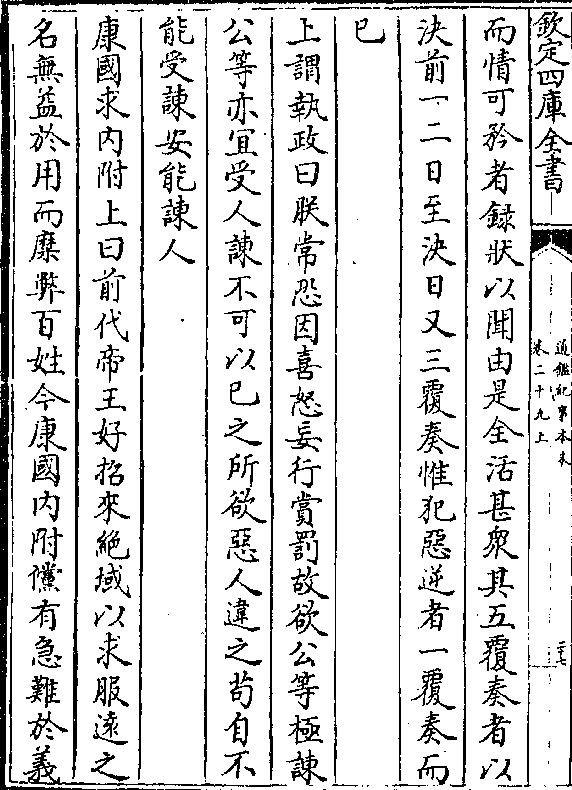 欽定四庫全書
通鑑紀事本末
卷二十九上
二十七
而情可矜者録狀以聞由是全活甚衆其五覆奏者以
決前一二日至決日又三覆奏惟犯惡逆者一覆奏而
已
上謂執政曰朕常恐因喜怒妄行賞罰故欲公等極諫
公等亦宜受人諫不可以己之所欲惡人違之苟自不
能受諫安能諫人
康國求内附上曰前代帝王好招來絶域以求服遠之
名無益於用而糜弊百姓今康國内附儻有急難於義